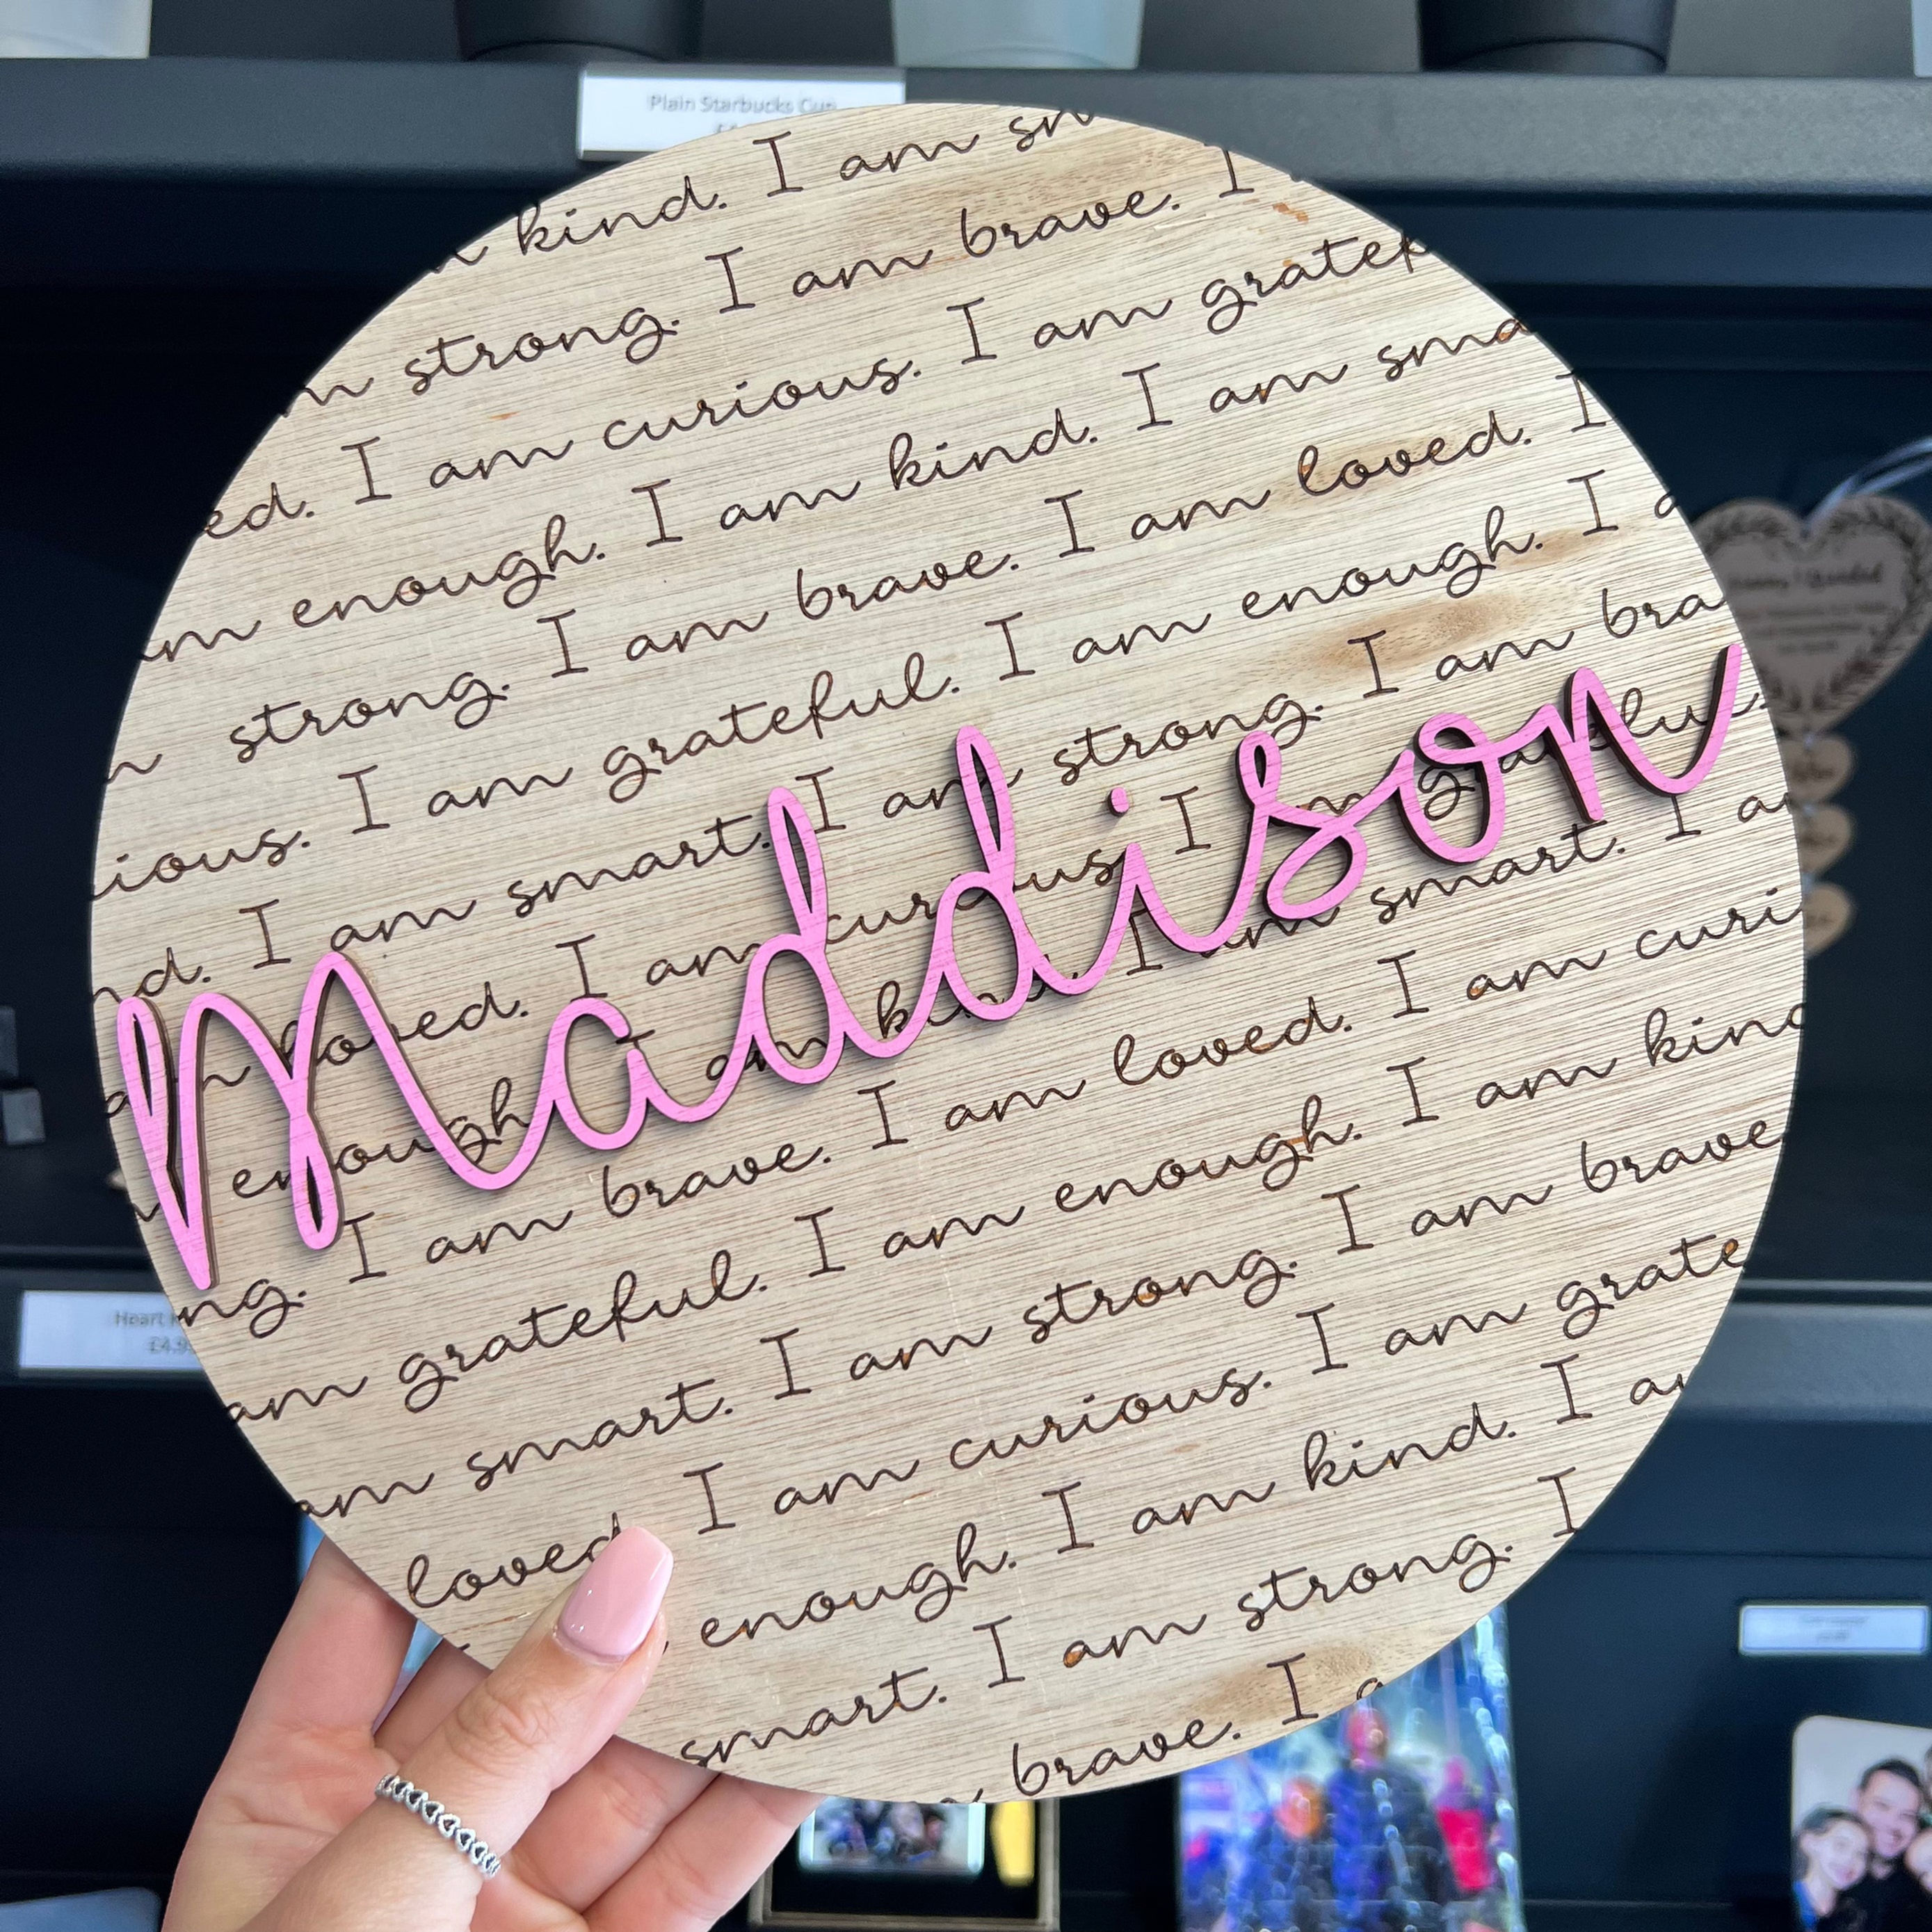 Plain Starbucks Cup
kind. I am sm
m strong. I am brave. I
ed. I am curious. I am gratef
am enough. I am kind. I am sma
m strong. I am brave. I am loved. I
ious. I am grateful. I am enough. I a
nd. I am smart. I am strong. I am bra
loved. I am curious. I am grateful.
enough. I am kind. I am smart. I a
Maddison
ng. I am brave. I am loved. I am curi
am grateful. I am enough. I am kind
am smart. I am strong. I am brave
loved. I am curious. I am grate
enough. I am kind. I a
smart. I am strong. I
brave. I a
Heart
£4.9